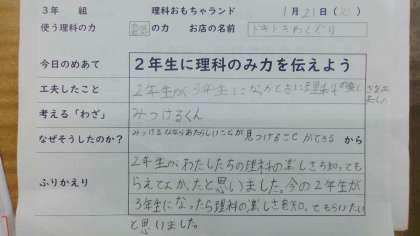 3年　組　理科おもちゃランド　1月21日（火）
使う理科の力　の力　お店の名前　ドキドキわくぐり
今日のめあて　2年生に理科のみ力を伝えよう
工夫したこと　2年生が3年生になったときに理科の楽しさを
考える「わざ」　みつけるくん
なぜそうしたのか？　みつけるなならあたらしいことが見つけることができる　から
2年生がわたしたちの理科の楽しさを知っても
ふりかえり　らえてよかったと思いました。今の2年生が
3年生になったら理科の楽しさを知ってもらいたい
と思いました。